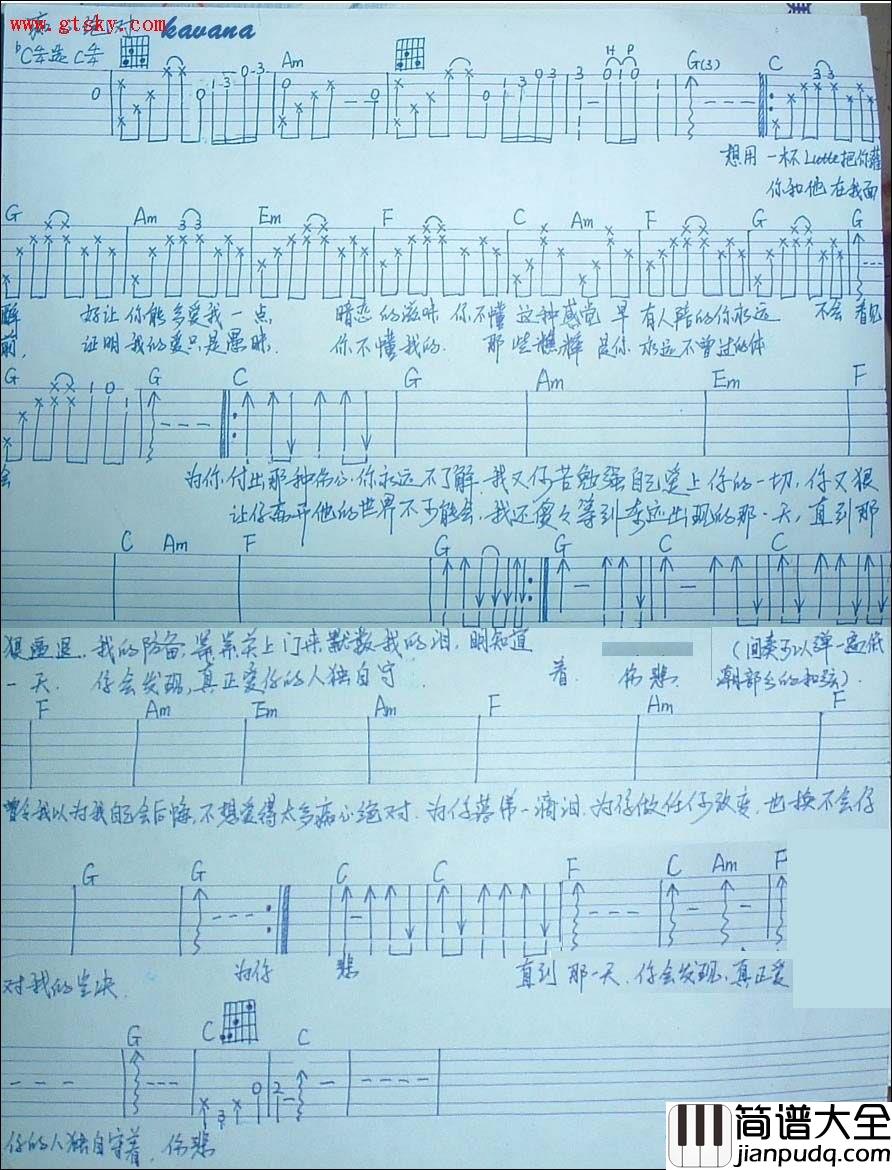 www.gtsky.com kavana
Am G(3) C
H P
想用一杯Latte把你灌
你和他在我面
G Am Em F C Am F G G
醉 好让你能多爱我一点 暗恋的滋味 你不懂这种感觉 早有人陪的你永远 不会 看见
前, 证明我的爱只是愚昧 你不懂我的 那些憔悴 是你永远不曾过的体
G G C G Am Em F
会 为你付出那种伤心你永远不了解 我又何苦勉强自己爱上你的一切 你又狠
让你离开他的世界不可能会 我还傻傻等到奇迹出现的那一天, 直到那
C Am F G G C C
狠逼退 我的防备 静静关上门来默数我的泪 明知道
一天 你会发现, 真正爱你的人独自守 着 伤悲 (间奏可以弹一遍低
潮部分的和弦)
F Am Em Am F Am F
曾今我以为我自己会后悔, 不想爱得太多痴心绝对 为你落第一滴泪 为你做任何改变 也换不会你
G G C C F C Am F
对我的坚决 为你 悲 直到那一天, 你会发现, 真正爱
G C C
你的人独自守着, 伤悲
简谱大全
jianpudq.com